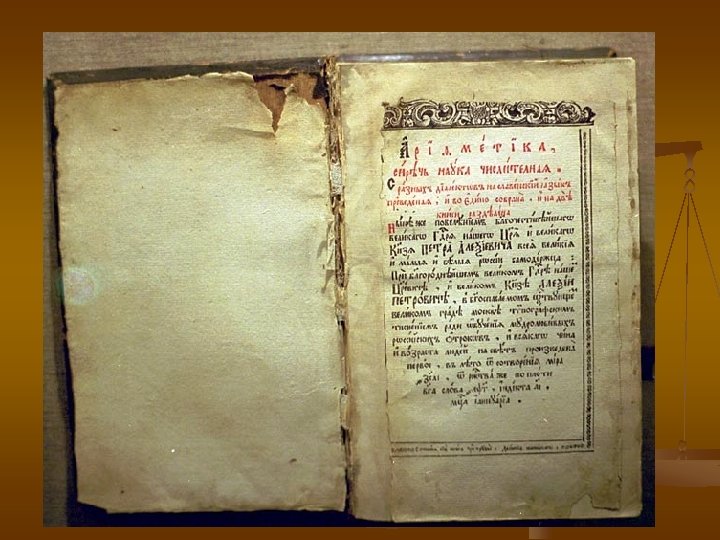 Арїѳметїка,
сирѣчь наука числителная.
С разныхъ дїалектовъ на славенскїй языкъ
преведеная, и во едино собрана, и на двѣ
книги раздѣлена
Нынѣ же повелѣнїемъ благочестивѣйшагѡ
великагѡ Гдⷭ҇ря нашегѡ Цр҃я и великагѡ
Кн҃зя ПЕТРА АЛЕѮІЕВИЧА всея великїя
и малыя и бѣлыя рѡссїи самодержца:
При благороднѣйшемъ великомъ Гдⷭ҇рѣ нашемъ
Цр҃евичѣ, и великомъ Кн҃зѣ АЛЕѮІИ
ПЕТРОВИЧѢ, в бг҃оспасаемомъ црⷭ҇твующемъ
великомъ градѣ москвѣ тѷпографскимъ
тисненїемъ ради ѡбученїя мудролюбивыхъ
рѡссїйскихъ ѻтрокѡвъ, и всякагѡ чина
и возраста людей на свѣтъ произведена
первое, в лѣто ѿ сотворенїя мїра
҂зсаі, ѿ рождⷭ҇тва же по плоти
бг҃а слова ҂аѱг, їндїкта аі,
мцⷭ҇а їаннуарїа.